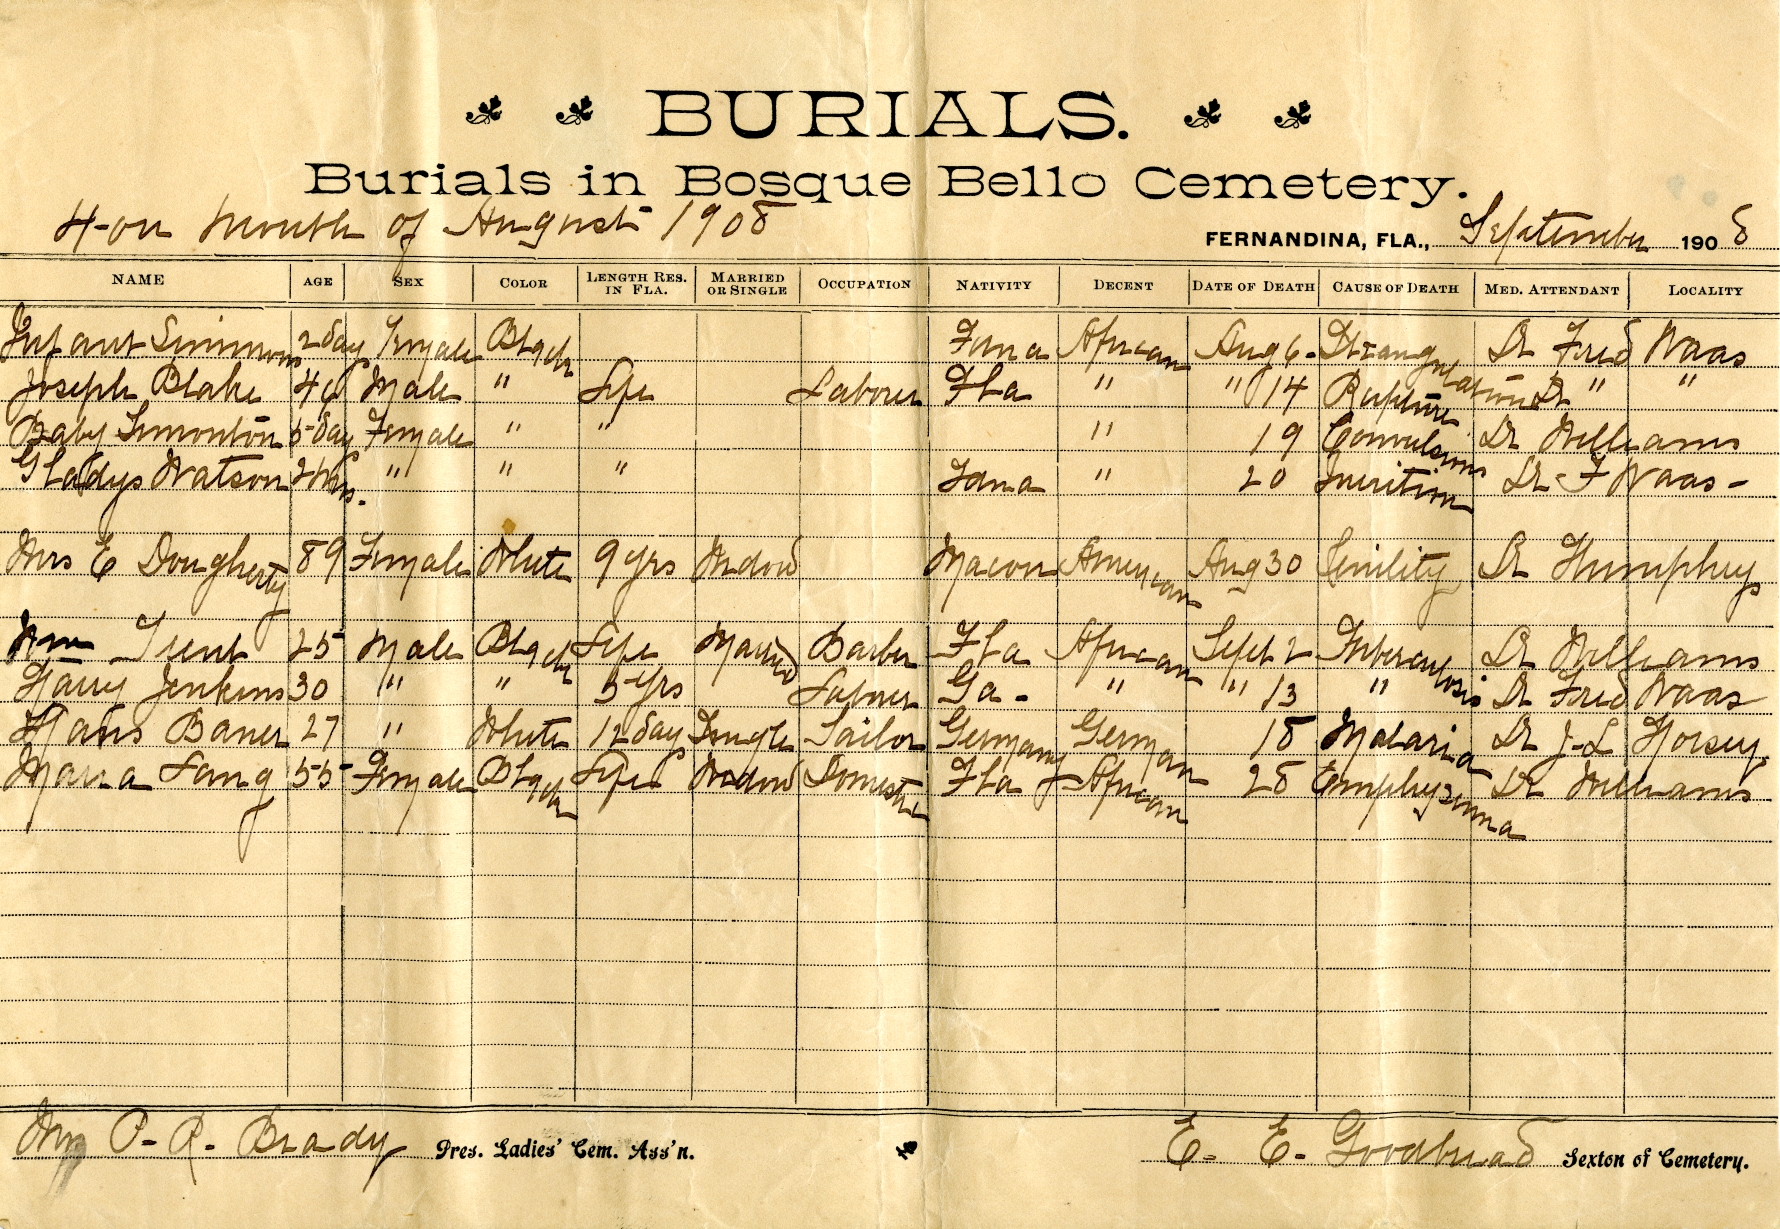 BURIALS.
Burials in Bosque Bello Cemetery.
For month of August 1908
FERNANDINA, FLA., September 1908
NAME AGE SEX COLOR LENGTH RES. IN FLA. MARRIED OR SINGLE OCCUPATION NATIVITY DECENT DATE OF DEATH CAUSE OF DEATH MED. ATTENDANT LOCALITY
Infant Simmons 2 day Female Black Fana African Aug 6 - Strangulation Dr Fred Waas
Joseph Blake 46 Male " Life Laborer Fla " " 14 Rupture Dr " "
Baby Simonton 5 day Female " " " 19 Convulsions Dr Williams
Gladys Watson " " " Fana " 20 Dr F Waas -
Mrs E Dougherty 89 Female White 9 yrs Widow Macon American Aug 30 Senility Dr Humphreys
Wm Trent 25 Male Black Life Married Barber Fla African Sept 2 Tuberculosis Dr Williams
Harry Jenkins 30 " " 5 yrs Laborer Ga - " " 13 " Dr Fred Waas
Hans Baner 27 " White 12 day Single Sailor Germany German 18 Malaria Dr J-L Horsey
Maria Lang 55 Female Black Life Widow Domestic Fla African 28 Emphysema Dr Williams
P- R- Brady Pres. Ladies' Cem. Ass'n. E- E- Goodbread Sexton of Cemetery.